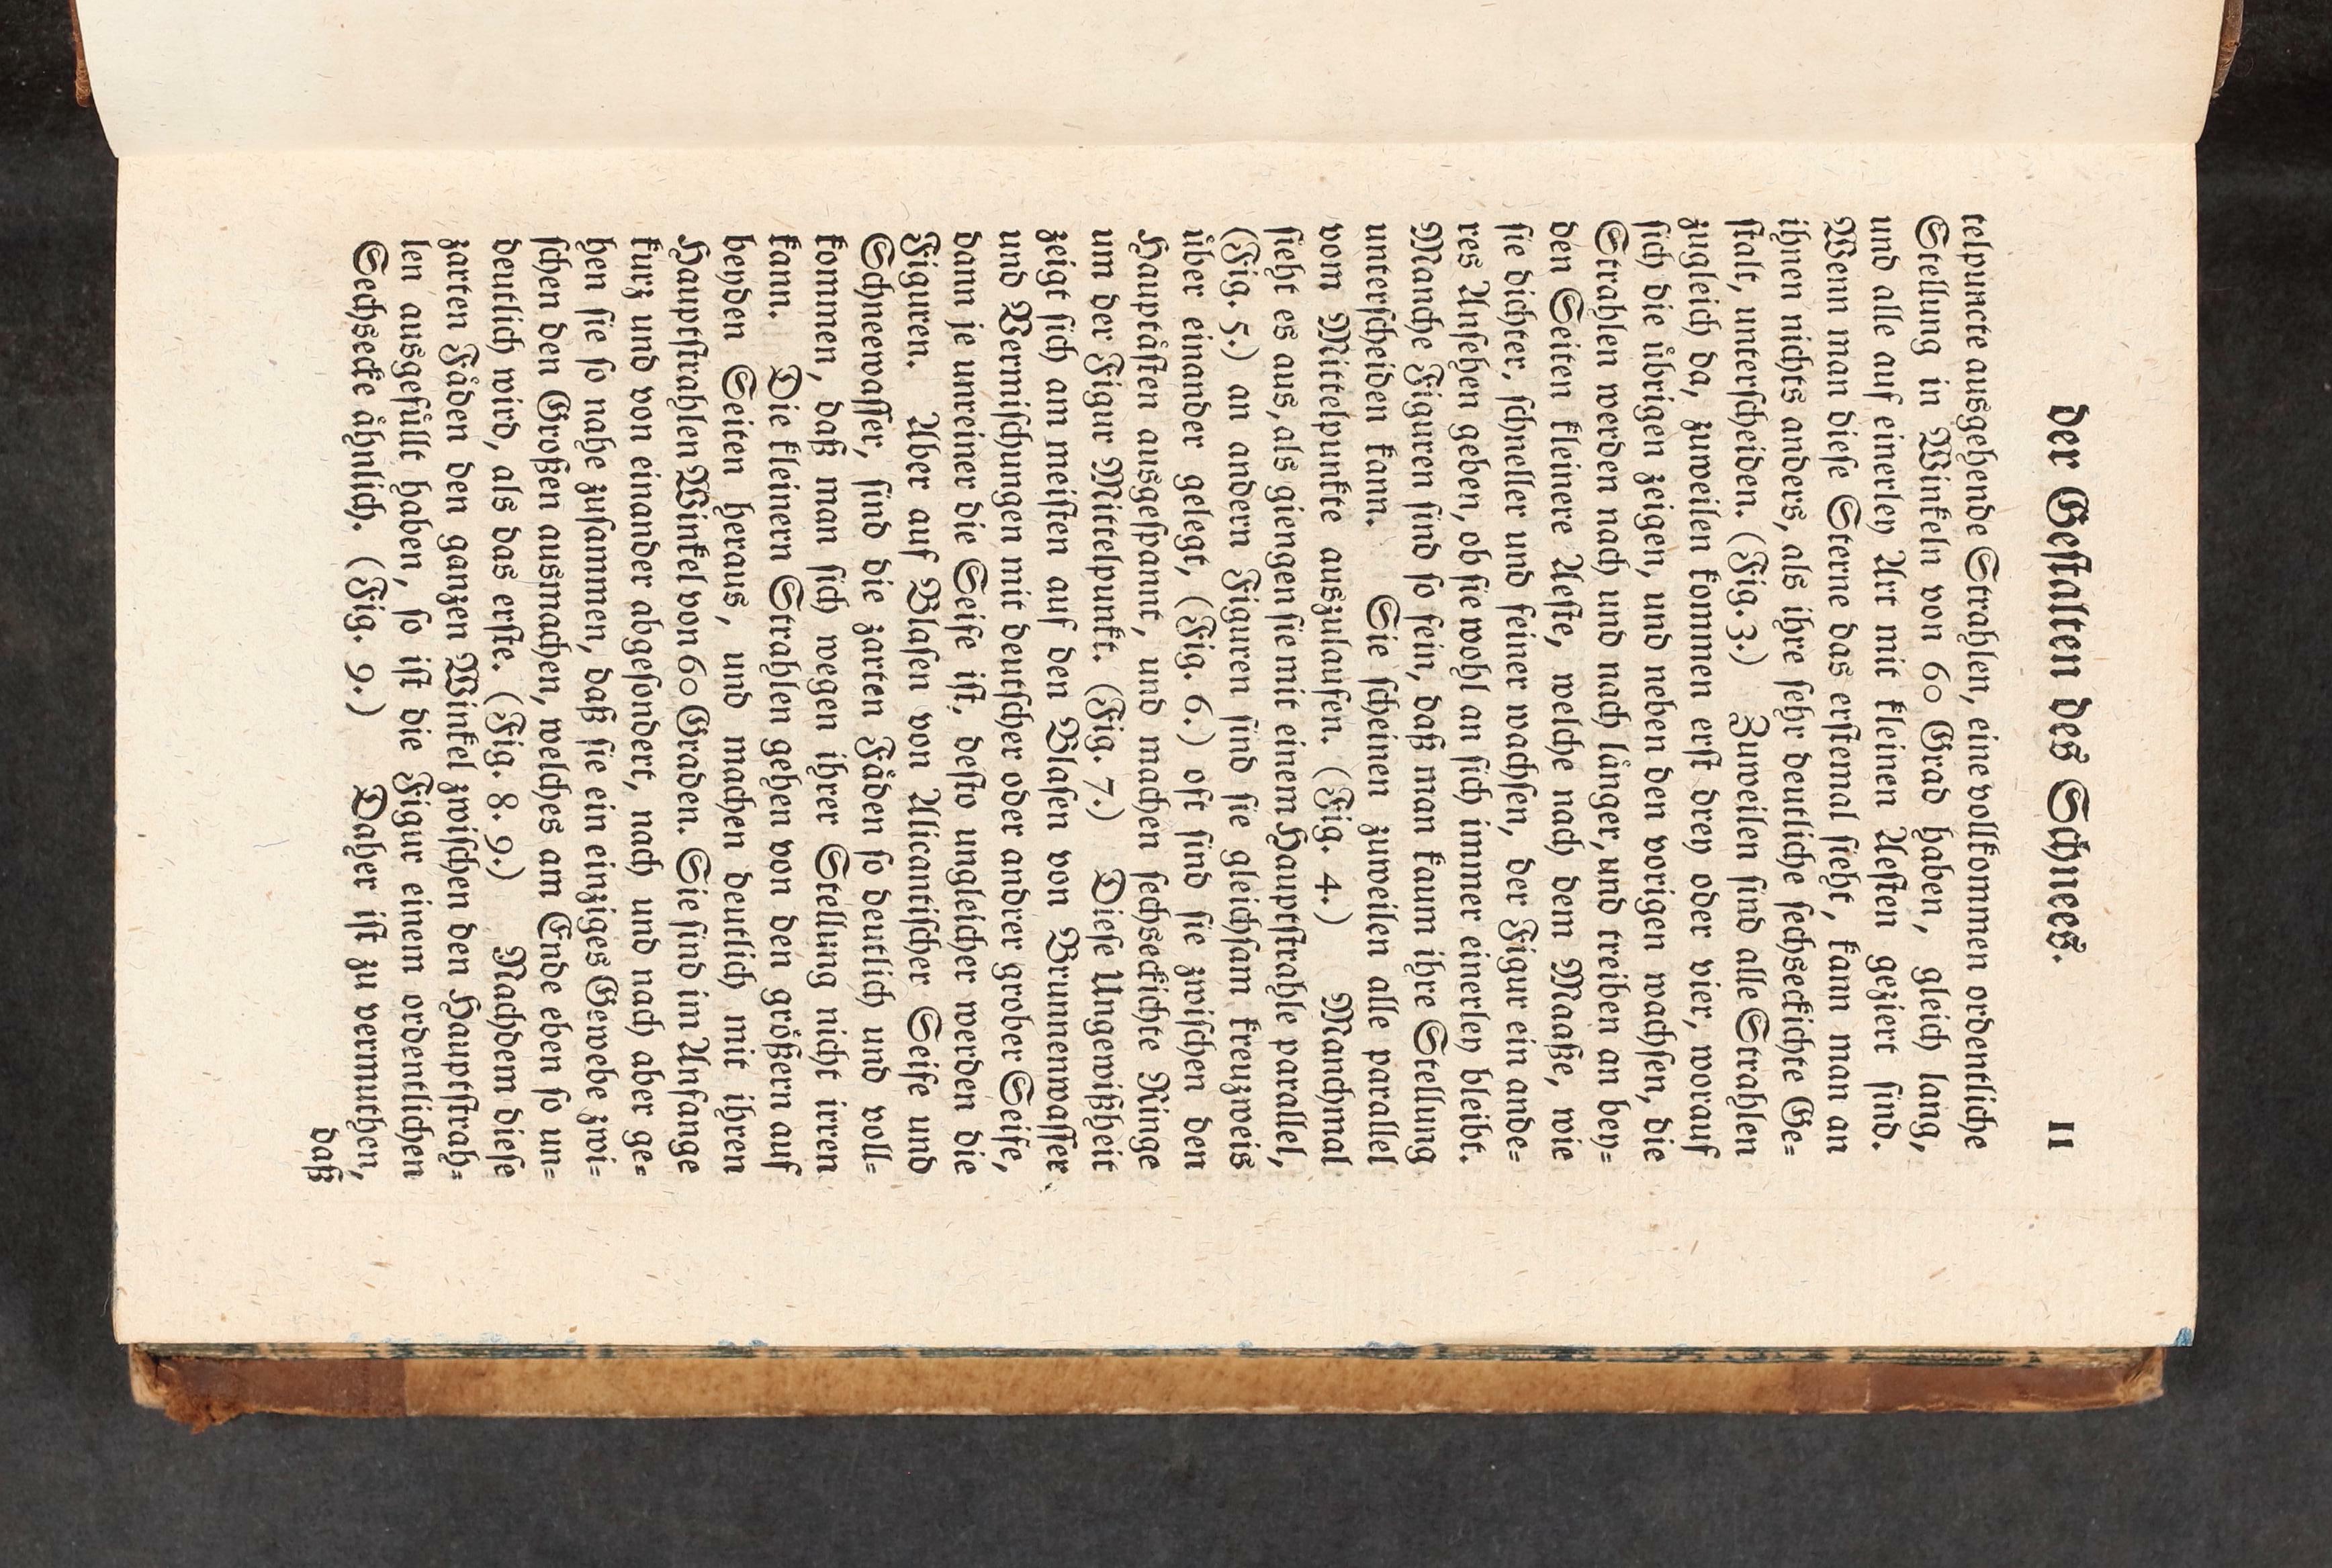 der Geſtalten des Schnees. 11
telpuncte ausgehende Strahlen, eine vollkommen ordentliche
Stellung in Winkeln von 60 Grad haben, gleich lang,
und alle auf einerley Art mit kleinen Aeſten geziert ſind.
Wenn man dieſe Sterne das erſtemal ſieht, kann man an
ihnen nichts anders, als ihre ſehr deutliche ſechseckichte Ge-
ſtalt, unterſcheiden. (Fig. 3.) Zuweilen ſind alle Strahlen
zugleich da, zuweilen kommen erſt drey oder vier, worauf
ſich die uͤbrigen zeigen, und neben den vorigen wachſen, die
Strahlen werden nach und nach laͤnger, und treiben an bey-
den Seiten kleinere Aeſte, welche nach dem Maaße, wie
ſie dichter, ſchneller und feiner wachſen, der Figur ein ande-
res Anſehen geben, ob ſie wohl an ſich immer einerley bleibt.
Manche Figuren ſind ſo fein, daß man kaum ihre Stellung
unterſcheiden kann. Sie ſcheinen zuweilen alle parallel
vom Mittelpunkte auszulaufen. (Fig. 4.) Manchmal
ſieht es aus, als giengen ſie mit einem Hauptſtrahle parallel,
(Fig. 5.) an andern Figuren ſind ſie gleichſam kreuzweis
uͤber einander gelegt, (Fig. 6.) oft ſind ſie zwiſchen den
Hauptaͤſten ausgeſpannt, und machen ſechseckichte Ringe
um der Figur Mittelpunkt. (Fig. 7.) Dieſe Ungewißheit
zeigt ſich am meiſten auf den Blaſen von Brunnenwaſſer
und Vermiſchungen mit deutſcher oder andrer grober Seife,
dann je unreiner die Seife iſt, deſto ungleicher werden die
Figuren. Aber auf Blaſen von Alicantiſcher Seife und
Schneewaſſer, ſind die zarten Faͤden ſo deutlich und voll-
kommen, daß man ſich wegen ihrer Stellung nicht irren
kann. Die kleinern Strahlen gehen von den groͤßern auf
beyden Seiten heraus, und machen deutlich mit ihren
Hauptſtrahlen Winkel von 60 Graden. Sie ſind im Anfange
kurz und von einander abgeſondert, nach und nach aber ge-
hen ſie ſo nahe zuſammen, daß ſie ein einziges Gewebe zwi-
ſchen den Großen ausmachen, welches am Ende eben ſo un-
deutlich wird, als das erſte. (Fig. 8. 9.) Nachdem dieſe
zarten Faͤden den ganzen Winkel zwiſchen den Hauptſtrah-
len ausgefuͤllt haben, ſo iſt die Figur einem ordentlichen
Sechsecke aͤhnlich. (Fig. 9.) Daher iſt zu vermuthen,
daß